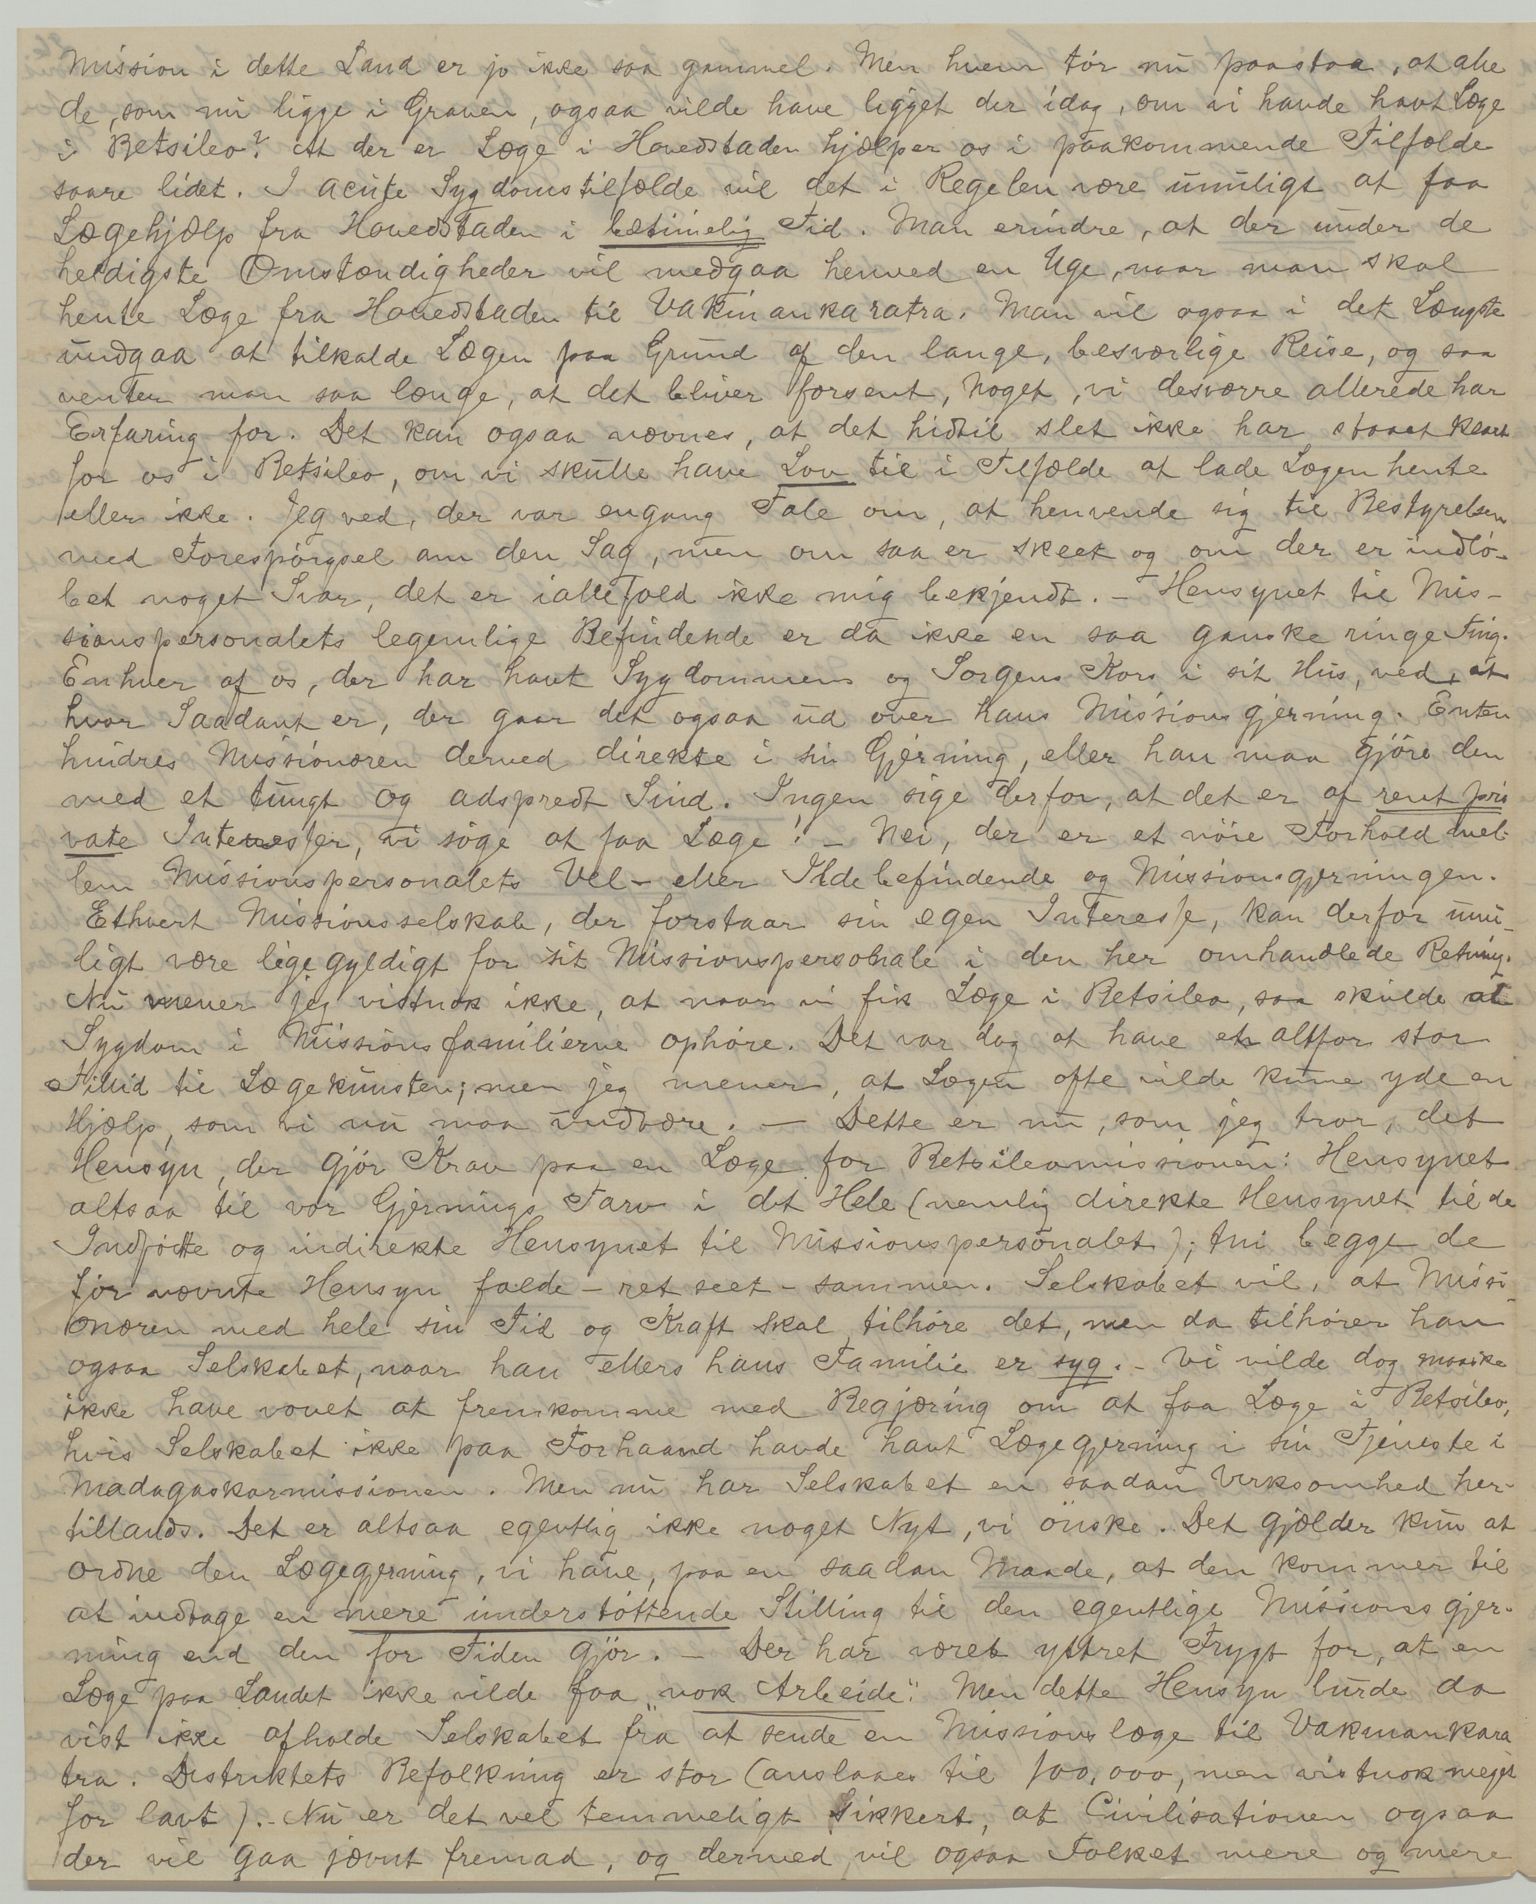 Mission i dette Land er jo ikke saa gammel. Men hvem tør nu paastaa, at alle
de, som nu ligge i Graven, ogsaa vilde have ligget der idag, om vi havde havt Læge
i Betsileo? At der er Læge i Hovedstaden hjælper os i paakommende Tilfælde
saare lidet. I acute Sygdomstilfælde vil det i Regelen være umuligt at faa
Lægehjælp fra Hovedstaden i betimelig Tid. Man erindre, at der under de
heldigste Omstændigheder vil medgaa henved en Uge, naar man skal
hente Læge fra Hovedstaden til Vakinankaratra. Man vil ogsaa i det Længste
undgaa at tilkalde Lægen paa Grund af den lange, besværlige Reise, og saa
venter man saa længe, at det bliver forsent, Noget, vi desværre allerede har
Erfaring for. Det kan ogsaa nævnes, at det hidtil slet ikke har staaet klart
for os i Betsileo, om vi skulle have Lov til i Tilfælde at lade Lægen hente
eller ikke. Jeg ved, der var engang Tale om, at henvende sig til Bestyrelsen
med Forespørgsel om den Sag, men om saa er skeet og om der er indlø-
bet noget Svar, det er iallefald ikke mig bekjendt. – Hensynet til Mis-
sionspersonalets legemlige Befindende er da ikke en saa ganske ringe Ting.
Enhver af os, der har havt Sygdommens og Sorgens Kors i sit Hus, ved, at
hvor Saadant er, der gaar det ogsaa ud over hans Missionsgjerning. Enten
hindres Missionæren derved direkte i sin Gjerning, eller han maa gjøre den
med et tungt og adspredt Sind. Ingen sige derfor, at det er af rent pri
vate Interesser, vi søge at faa Læge! – Nei, der er et nøie Forhold mel-
lem Missionspersonalets Vel – eller Ildebefindende og Missionsgjerningen.
Ethvert Missionsselskab, der forstaar sin egen Interesse, kan derfor umu-
ligt være ligegyldigt for sit Missionspersonale i den her omhandlede Retning.
Nu mener jeg vistnok ikke, at naar vi fik Læge i Betsileo, saa skulde al
Sygdom i Missionsfamilierne ophøre. Det var dog at have en altfor stor
Tillid til Lægekunsten; men jeg mener, at Lægen ofte vilde kunne yde en
Hjælp, som vi nu maa undvære. — Dette er nu, som jeg tror, det
Hensyn, der gjør Krav paa en Læge for Betsileomissionen: Hensynet
altsaa til vor Gjernings Tarv i det Hele (nemlig direkte Hensynet til de
Indfødte og indirekte Hensynet til Missionspersonalet); thi begge de
før nævnte Hensyn falde – ret seet – sammen. Selskabet vil, at Missi-
onæren med hele sin Tid og Kraft skal tilhøre det, men da tilhører han
ogsaa Selskabet, naar han ellers hans Familie er syg. – Vi vilde dog maaske
ikke have vovet at fremkomme med Begjæring om at faa Læge i Betsileo,
hvis Selskabet ikke paa Forhaand havde havt Lægegjerning i sin Tjeneste i
Madagaskarmissionen. Men nu har Selskabet en saadan Virksomhed her-
tillands. Det er altsaa egentlig ikke noget Nyt, vi ønske. Det gjælder kun at
ordne den Lægegjerning, vi have, paa en saadan Maade, at den kommer til
at indtage en mere understøttende Stilling til den egentlige Missionsgjer-
ning end den for Tiden gjør. – Der har været yttret Frygt for, at en
Læge paa Landet ikke vilde faa „nok Arbeide“. Men dette Hensyn burde da
vist ikke afholde Selskabet fra at sende en Missionslæge til Vakinankara
tra. Distriktets Befolkning er stor (anslaaes til 100,000, men vistnok meget
for lavt). – Nu er det vel temmeligt sikkert, at Civilisationen ogsaa
der vil gaa jævnt fremad, og dermed vil ogsaa Folket mere og mere